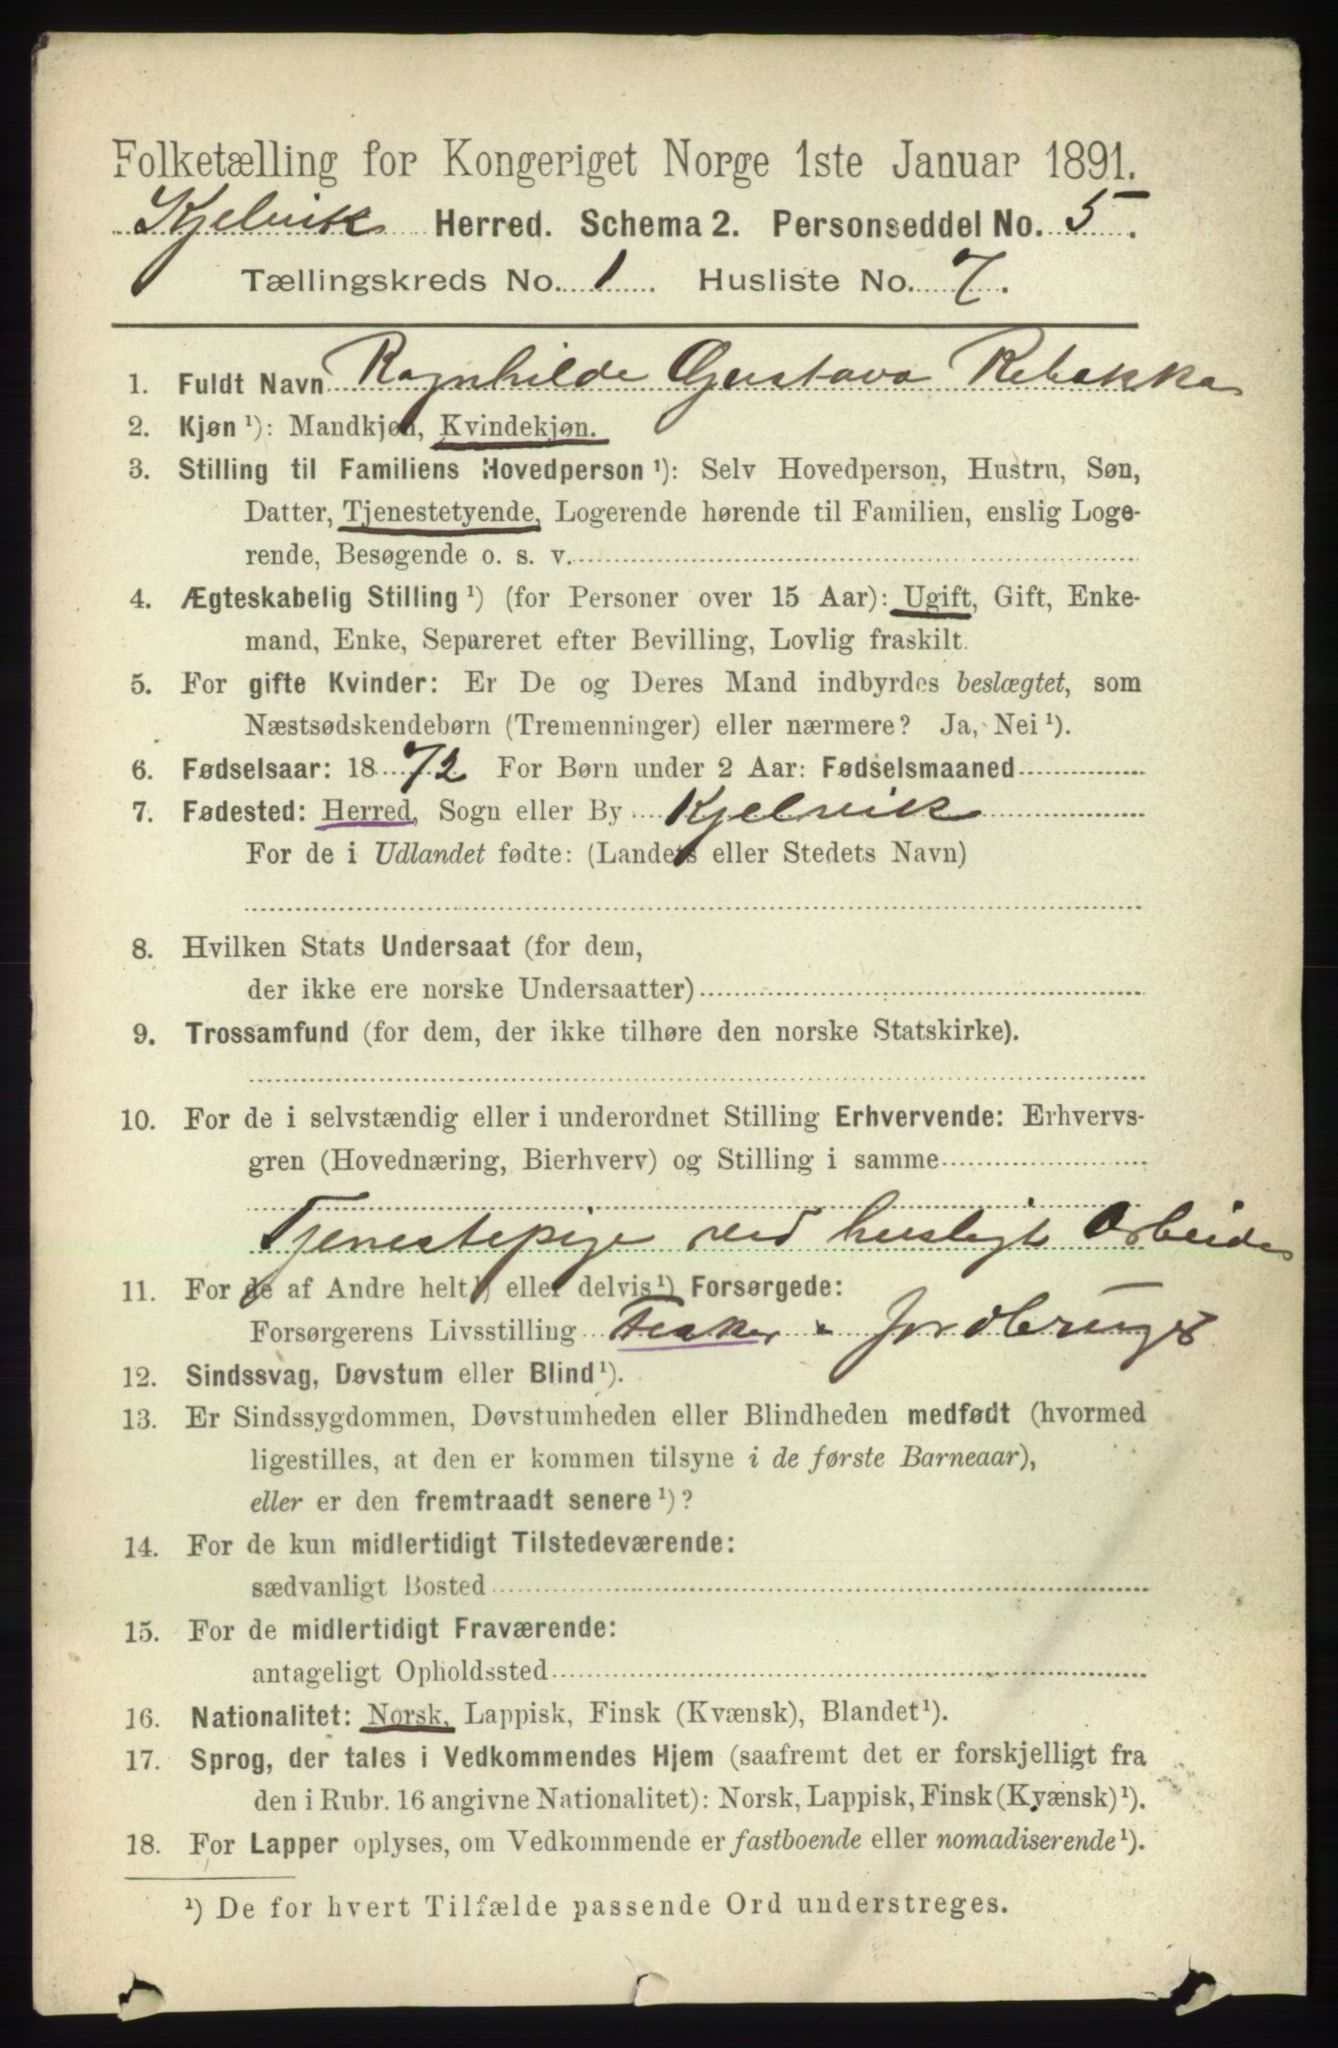 Folketælling for Kongeriget Norge 1ste Januar 1891.
Kjelvik Herred. Schema 2. Personseddel No. 5.
Tællingskreds No. 1. Husliste No. 7.
1. Fuldt Navn Ragnhilde Gustava Rebekka
2. Kjøn ¹): Mandkjøn, Kvindekjøn.
3. Stilling til Familiens Hovedperson ¹): Selv Hovedperson, Hustru, Søn,
Datter, Tjenestetyende, Logerende hørende til Familien, enslig Loge-
rende, Besøgende o. s. v.
4. Ægteskabelig Stilling ¹) (for Personer over 15 Aar): Ugift, Gift, Enke-
mand, Enke, Separeret efter Bevilling, Lovlig fraskilt.
5. For gifte Kvinder: Er De og Deres Mand indbyrdes beslægtet, som
Næstsødskendebørn (Tremenninger) eller nærmere? Ja, Nei ¹).
6. Fødselsaar: 1872 For Børn under 2 Aar: Fødselsmaaned
7. Fødested: Herred, Sogn eller By Kjelvik
For de i Udlandet fødte: (Landets eller Stedets Navn)
8. Hvilken Stats Undersaat (for dem,
der ikke ere norske Undersaatter)
9. Trossamfund (for dem, der ikke tilhøre den norske Statskirke).
10. For de i selvstændig eller i underordnet Stilling Erhvervende: Erhvervs-
gren (Hovednæring, Bierhverv) og Stilling i samme
Tjenestepige ved husligt Arbeide
11. For de af Andre helt ¹) eller delvis ¹) Forsørgede:
Forsørgerens Livsstilling Fisker - Jordbruger
12. Sindssvag, Døvstum eller Blind ¹).
13. Er Sindssygdommen, Døvstumheden eller Blindheden medfødt (hvormed
ligestilles, at den er kommen tilsyne i de første Barneaar),
eller er den fremtraadt senere ¹)?
14. For de kun midlertidigt Tilstedeværende:
sædvanligt Bosted
15. For de midlertidigt Fraværende:
antageligt Opholdssted
16. Nationalitet: Norsk, Lappisk, Finsk (Kvænsk), Blandet ¹).
17. Sprog, der tales i Vedkommendes Hjem (saafremt det er forskjelligt fra
den i Rubr. 16 angivne Nationalitet): Norsk, Lappisk, Finsk (Kvænsk) ¹).
18. For Lapper oplyses, om Vedkommende er fastboende eller nomadiserende ¹).
¹) De for hvert Tilfælde passende Ord understreges.